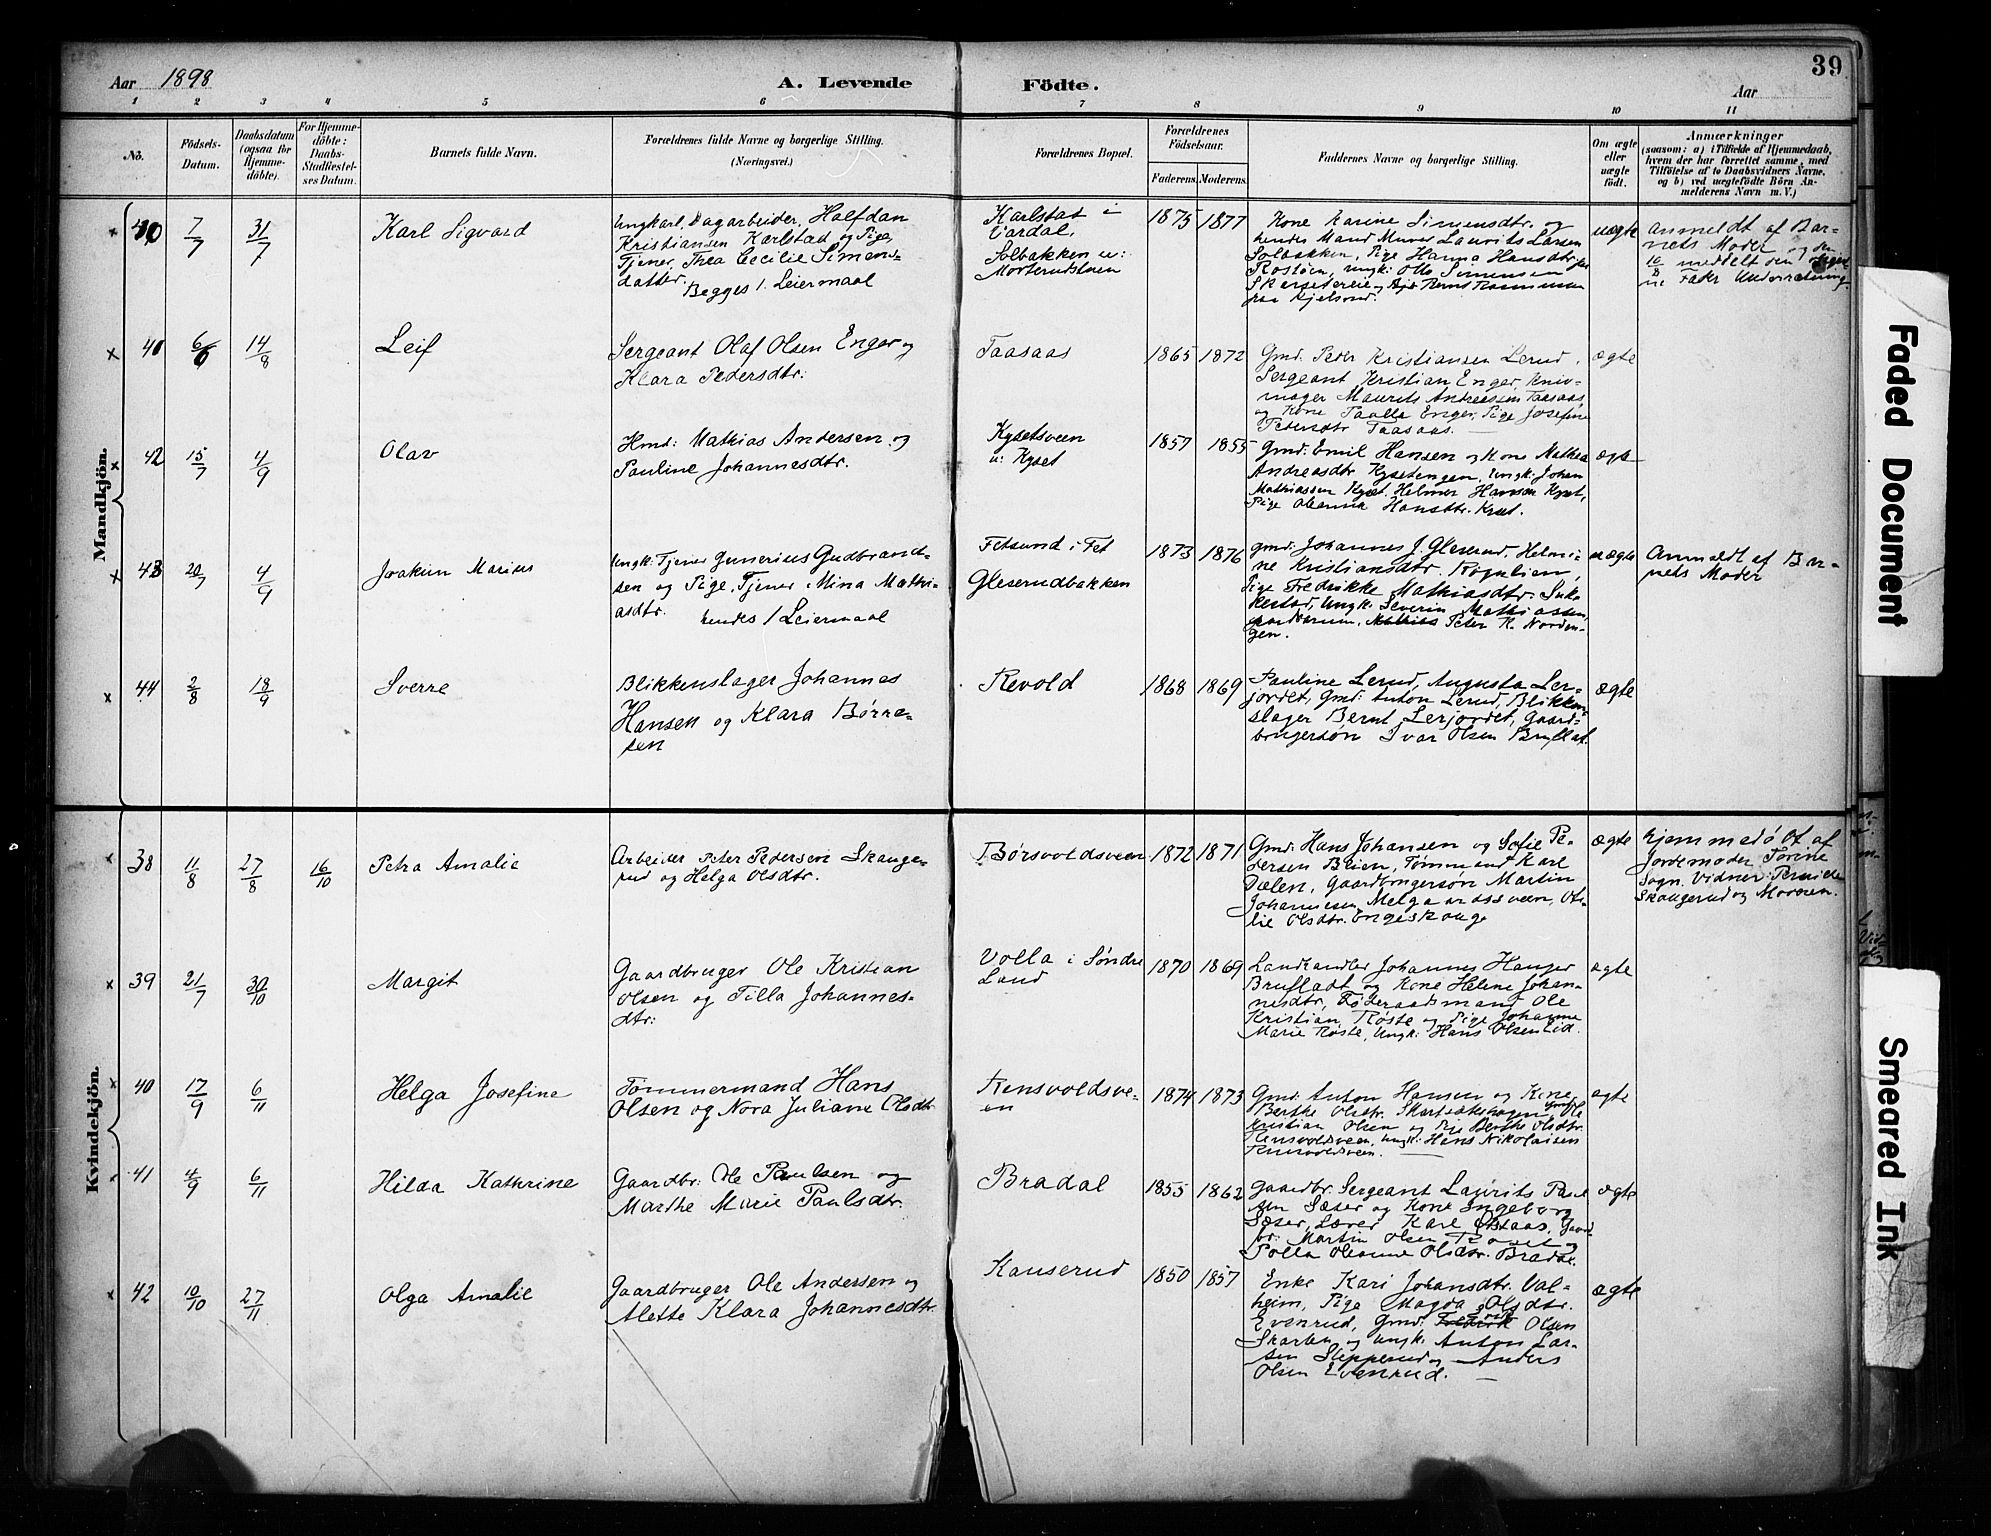 39
Aar 1898
A. Levende Födte.
Aar
1 2 3 4 5 6 7 8 9 10 11
No.
Födsels-
Datum.
Daabsdatum
(ogsaa for
Hjemme-
döbte).
For Hjemme-
döbte:
Daabs-
Stadfæstel-
ses Datum.
Barnets fulde Navn.
Forældrenes fulde Navne og borgerlige Stilling.
(Næringsvei.)
Forældrenes Bopæl.
Forældrenes
Födselsaar.
Faderens. Moderens.
Faddernes Navne og borgerlige Stilling.
Om ægte
eller
uægte
födt.
Anmærkninger
(saasom: a) i Tilfælde af Hjemmedaab,
hvem der har forrettet samme, med
Tilföielse af to Daabsvidners Navne,
og b) ved uægtefödte Börn An-
melderens Navn m. V.)
Mandkjön.
40 7/7 31/7
Karl Sigvard
Ungkarl, Dagarbeider, Halfdan
Kristiansen Karlstad og Pige,
Tjener, Thea Cecilie Simens-
datter.
Begges 1. Leiermaal
Karlstad i
Vardal,
Solbakken u:
1875 1877
Kone Karine Simensdtr. og
hendes Mand Murer Laurits Larsen
Solbakken, Pige Hanna Hansdtr.
Rostöen, Ungk: Otto Simensen
uægte
Anmeldt af Bar-
nets Moder og den
10/8 meddelt den
ne Fader Underretning.
x 41 6/6 14/8
Leif
Sergeant Olaf Olsen Enger og
Klara Pedersdtr:
Taasaas
1865 1872
Gmd. Peder Kristiansen Lerud,
Sergeant Kristian Enger, Kniv-
mager Maurits Andreassen Taasaas,
og Kone Paulla Enger, Pige Josefine
Petersdtr Taasaas.
ægte
42 x 15/7 4/9
Olav
Hmd: Mathias Andersen og
Pauline Johannesdtr.
Kysetsveen
u: Kyset
1857 1855
Gmd: Emil Hansen og Kone Mathea
Andreasdtr Kysetengen, Ungk: Johan
Mathiassen Kyset, Helmer Hansen Kyset,
Pige Oleanna Hansdtr. Kyset.
ægte
x 43 20/7 4/9
Joakim Marius
Ungk: Tjener Gunerius Gudbrand-
sen og Pige, Tjener Mina Mathi-
asdtr.
hendes 1 Leiermaal
Fetsund i Fet
Gleserudbakken
1873 1876
Gmd. Johannes J. Gleserud, Helmi-
ne Kristiansdtr. Rognlien,
Pige Fredrikke Mathiasdtr. Suk-
kestad, Ungk: Severin Mathiassen
Peter K. Norden-
gen.
uægte
Anmeldt af Bar-
nets Moder
x 44 2/8 18/9
Sverre
Blikkenslager Johannes
Hansen og Klara Børre-
sen
Revold
1868 1869
Pauline Lerud, Augusta Ler-
jordet, Gmd: Anton Lerud, Blikken-
slager Bernt Lerjordet, Gaard-
brugersøn Ivar Olsen Bruflat.
ægte
Kvindekjön.
x 38 11/8 27/8 16/10
Petra Amalie
Arbeider Peter Pedersen Skauge-
rud og Helga Olsdtr.
Børsvoldsveen
1872 1871
Gmd: Hans Johansen og Sofie Pe-
dersen Blien, Tømmermand Karl
Dælen, Gaardbrugersøn Martin
Johannesen, Helga
lie Olsdtr. Engeskauge
ægte
hjemmedøbt af
Jordemoder Torine
Sogn. Vidner:
Skaugerud og Moderen.
x 39 21/7 30/10
Margit
Gaardbruger Ole Kristian
Olsen og Tilla Johannes-
dtr:
Volla i Søndre
Land
1870 1869
Landhandler Johannes Hanger
Brufladt og Kone Helene Johan-
nesdtr, Føderaadsmand Ole
Kristian Røste og Pige Johanne
Marie Røste, Ungk: Hans Olsen Lid.
ægte
x 40 17/9 6/11
Helga Josefine
Tømmermand Hans
Olsen og Nora Juliane Olsdtr
Rensvoldsve-
en
1874 1873
Gmd: Anton Hansen og Kone
Berthe Olsdtr. Skartsætehagen, Ole
Kristian Olsen og Pige Berthe Olsdtr.
Rensvoldsveen, Ungk: Hans Nikolaisen
Rensvoldsveen.
ægte
x 41 4/9 6/11
Hilda Kathrine
Gaardbr: Ole Paulsen og
Marthe Marie Paulsdtr.
Bradal
1855 1862
Gaardbr. Sergeant Laurits Paul
sen Sæter og Kone Ingeborg
Sæter, Lærer Karl Østaas, Gaard
br. Martin Olsen
Polla Oleanne Olsdtr. Bradal.
ægte
x 42 10/10 27/11
Olga Amalie
Gaardbruger Ole Andersen og
Alette Klara Johannesdtr.
Kauserud
1850 1857
Enke Kari Johansdtr. Val-
heim, Pige Magda Olsdtr.
Evenrud, Gmd: Fredrik Olsen
Skarten og Ungk: Anton Lar-
sen Slepperud og Anders
Olsen Evenrud.
ægte
Faded Document
Smeared Ink